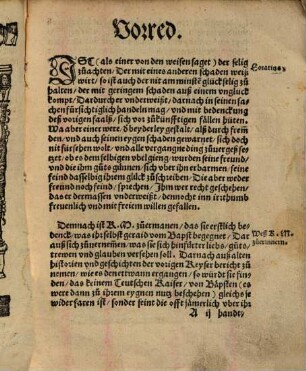 Vorred.
ISt (als einer von den weisen saget) der selig
zůachten / Der mit eines anderen schaden weiß
wirt / so ist auch der nit am minsten glückselig zů
halten / der mit geringem schaden auß einem unglück
kompt / Dardurch er underweißt / darnach in seinen sa-
chen fürsichtiglich handeln mag / und mit bedenckung
deß vorigen faals / sich vor zůkünfftigen fällen hüten.
Wa aber einer were / beyderley gestalt / als durch frem-
den / und auch seinen eygen schaden gewarnet / sich doch
nit fürsehen wolt / und alle vergangne ding zůuergeß se-
tzet / ob es dem selbigen übel gieng / wurden seine freund /
und die ihm gůts günnen / sich uber ihn erbarmen / seine
feind dasselbig ihrem glück zůschreiben / Die aber weder
freund noch feind / sprechen / Ihm wer recht geschehen /
das er dermassen underweißt / dennocht inn irrthumb
freuenlich und mit freiem willen gefallen.
Horatius.
Demnach ist K. M. zůermanen / das sie erstlich be-
denck was ihr selbst gerad vom Bapst begegnet / Dar-
auß sich zůuernemen / was sie sich hinfür der lieb / gůts /
trewen und glauben versehen soll. Darnach auß alten
historien und geschichten der vorigen Keyser bericht zů
nemen / wie es den ettwann ergangen / so würdt sie fin-
den / das keinem Teutschen Kaiser / von Bäpsten (es
were dann zů ihrem eygnen nutz beschehen) gleichs je
widerfaren ist / sonder seind die offt jämerlich uber ihr
Weß K. M.
zůerinnern.
A ij
handt /